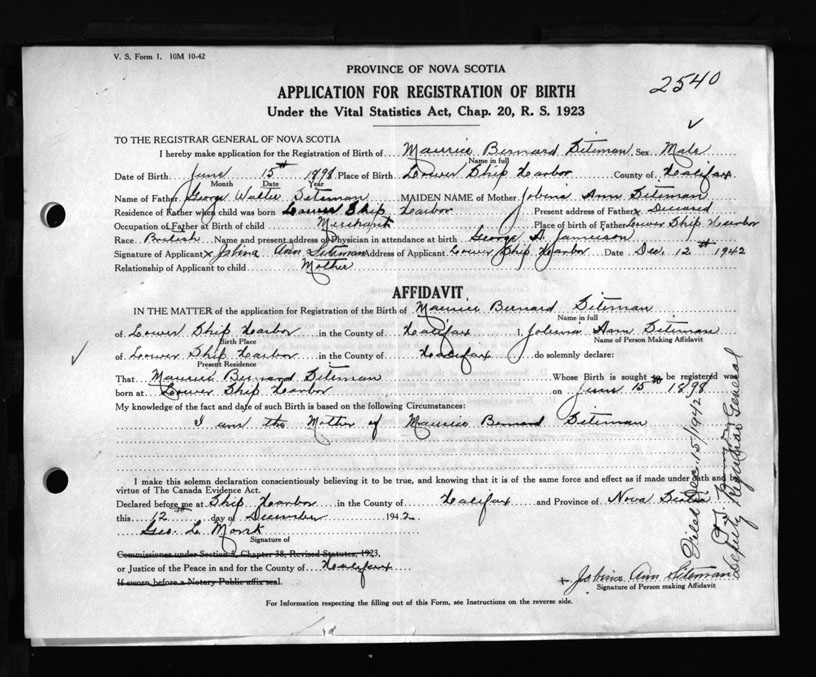 V. S. Form 1. 10M 10-42
2540
PROVINCE OF NOVA SCOTIA
APPLICATION FOR REGISTRATION OF BIRTH
Under the Vital Statistics Act, Chap. 20, R. S. 1923
TO THE REGISTRAR GENERAL OF NOVA SCOTIA
I hereby make application for the Registration of Birth of Maurice Bernard Siteman Sex Male
Name in full
Date of Birth June 15th 1898 Place of Birth Lower Ship Harbor County of Halifax
Month Date Year
Name of Father George Walter Siteman MAIDEN NAME of Mother Jobina Ann Siteman
Residence of Father when child was born Lower Ship Harbor Present address of Father
Occupation of Father at Birth of child Merchant Place of birth of Father Lower Ship Harbor
Race British Name and present address of Physician in attendance at birth George Jamieson
Signature of Applicant x Jobina Ann Siteman Address of Applicant Lower Ship Harbor Date Dec. 12th 1942
Relationship of Applicant to child Mother
AFFIDAVIT
IN THE MATTER of the application for Registration of the Birth of Maurice Bernard Siteman
Name in full
of Lower Ship Harbor in the County of Halifax I, Jobina Ann Siteman
Birth Place Name of Person Making Affidavit
of Lower Ship Harbor in the County of Halifax do solemnly declare:
Present Residence
That Maurice Bernard Siteman Whose Birth is sought to be registered was
born at Lower Ship Harbor on June 15th 1898
My knowledge of the fact and date of such Birth is based on the following Circumstances:
I am the Mother of Maurice Bernard Siteman
I make this solemn declaration conscientiously believing it to be true, and knowing that it is of the same force and effect as if made under oath and by
virtue of The Canada Evidence Act.
Declared before me at Ship Harbor in the County of Halifax and Province of Nova Scotia
this 12th day of December 1942
Geo. L.
Signature of
Commissioner under Section 3, Chapter 38, Revised Statutes, 1923,
or Justice of the Peace in and for the County of Halifax
If sworn before a Notary Public affix seal.
x Jobina Ann Siteman
Signature of Person making Affidavit
For Information respecting the filling out of this Form, see Instructions on the reverse side.
Filed Dec 15/1942
Deputy Registrar General